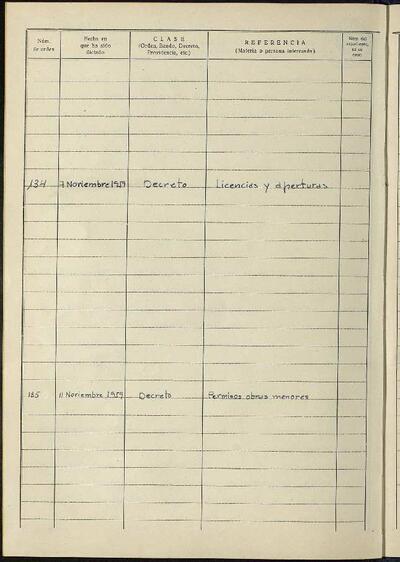 Núm. de orden
Fecha en que ha sido dictado
CLASE
(Orden, Bando, Decreto, Providencia, etc.)
REFERENCIA
(Materia o persona interesada)
Núm. del expediente, en su caso
134 7 Noviembre 1959 Decreto Licencias y aperturas
135 11 Noviembre 1959 Decreto Permisos obras menores